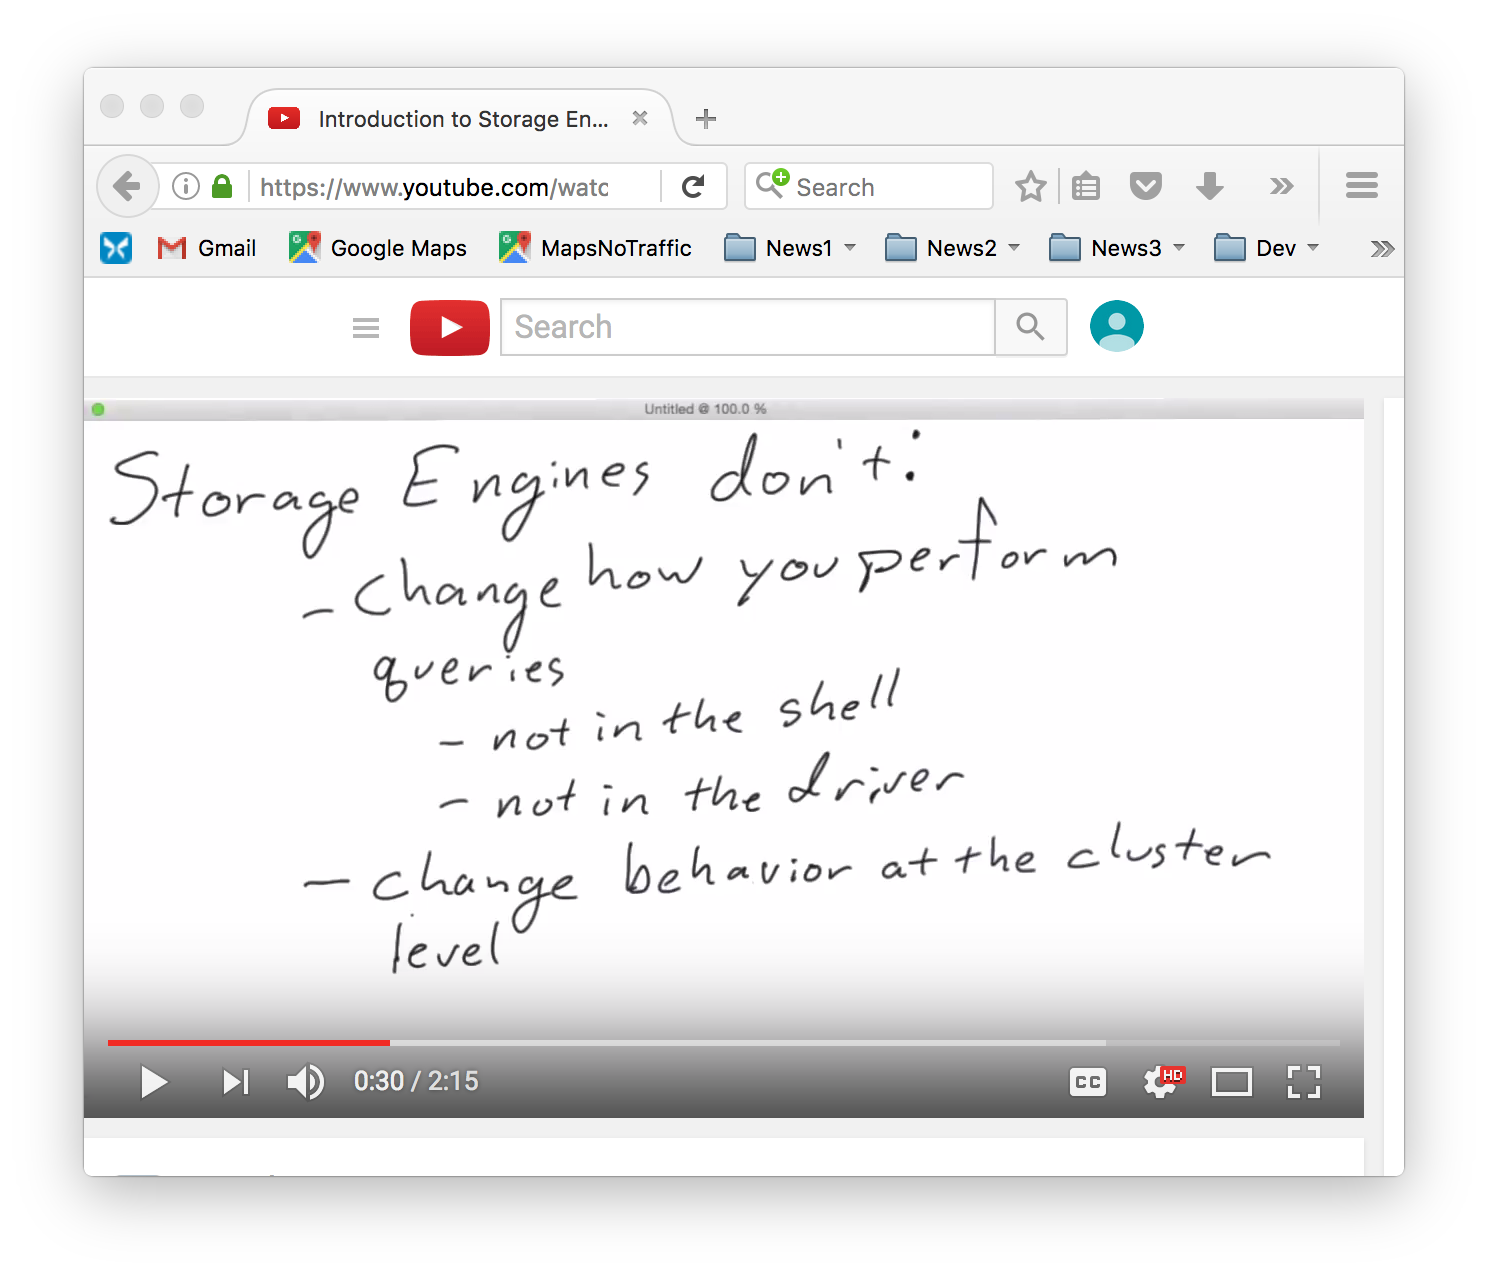 Introduction to Storage En...
https://www.youtube.com/watc
Search
Gmail Google Maps MapsNoTraffic News1 News2 News3 Dev
Search
Untitled @ 100.0 %
Storage Engines don't:
- change how you perform
queries
- not in the shell
- not in the driver
- change behavior at the cluster
level
0:30 / 2:15
CC
HD